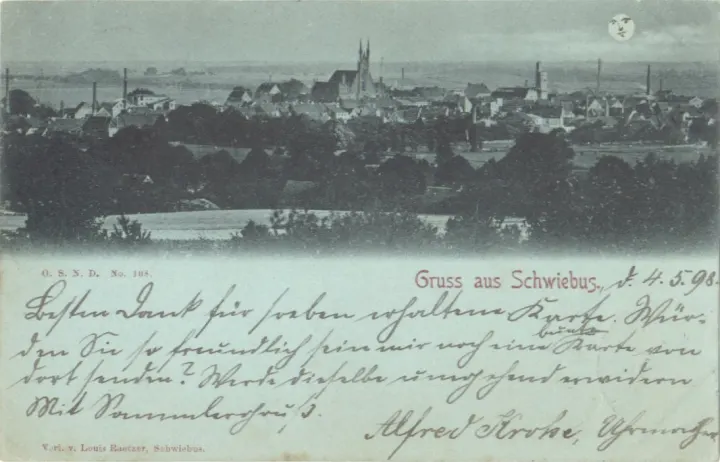 G. S. N. D. No. 108.
Gruss aus Schwiebus, d. 4.5.98.
Besten Dank für soeben erhaltene Karte. Wür-
den Sie so freundlich sein mir noch eine bunte Karte von
dort senden? Werde dieselbe umgehend erwidern
Mit Sammlergruß.
Alfred Krohe, Uhrmacher
Verl. v. Louis Raetzer, Schwiebus.